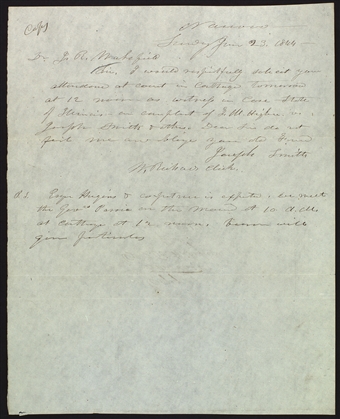 Copy
Nauvoo
Sunday June 23. 1844
Dr J. R. Wakefield
Sir, I would respectfully solicit your
attendance at court in Carthage tomorrow
at 12 noon as witness in case State
of Illinois on complaint of F. M. Higbee vs.
Joseph Smith & others, Dear Sir do not
fail me and oblige your old friend
Joseph Smith
W. Richards Clerk.
P.S. & expedition is we meet
the Gov's Posse on the mound at 10 A.M.
at Carthage at 12 noon. will
give particulars